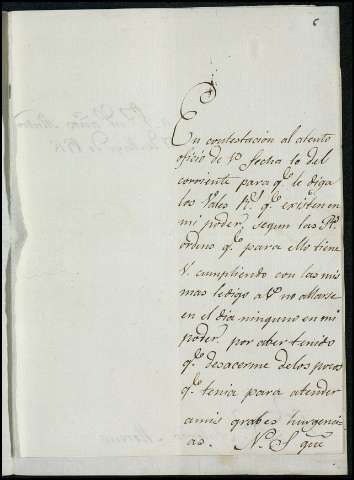 6
En contestacion al atento
oficio de V. fecha 10 del
corriente para qe. le diga
los Vales Rs. qe. existen en
mi poder, segun las Rs.
ordns. qe. para ello tiene
V. cumpliendo con las mis
mas le digo a V. no allarse
en el dia ninguno en mi
poder, por aber tenido
qe. desacerme de los pocos
qe. tenia para atender
a mis grabes hurgenci
as. No. S. que